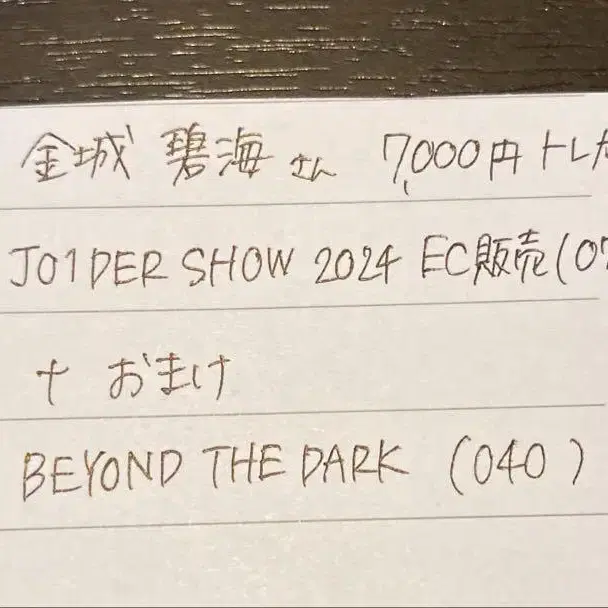 金城 碧海 さん 7,000円 トレカ
JO1DER SHOW 2024 EC販売(07
+ おまけ
BEYOND THE DARK (040)